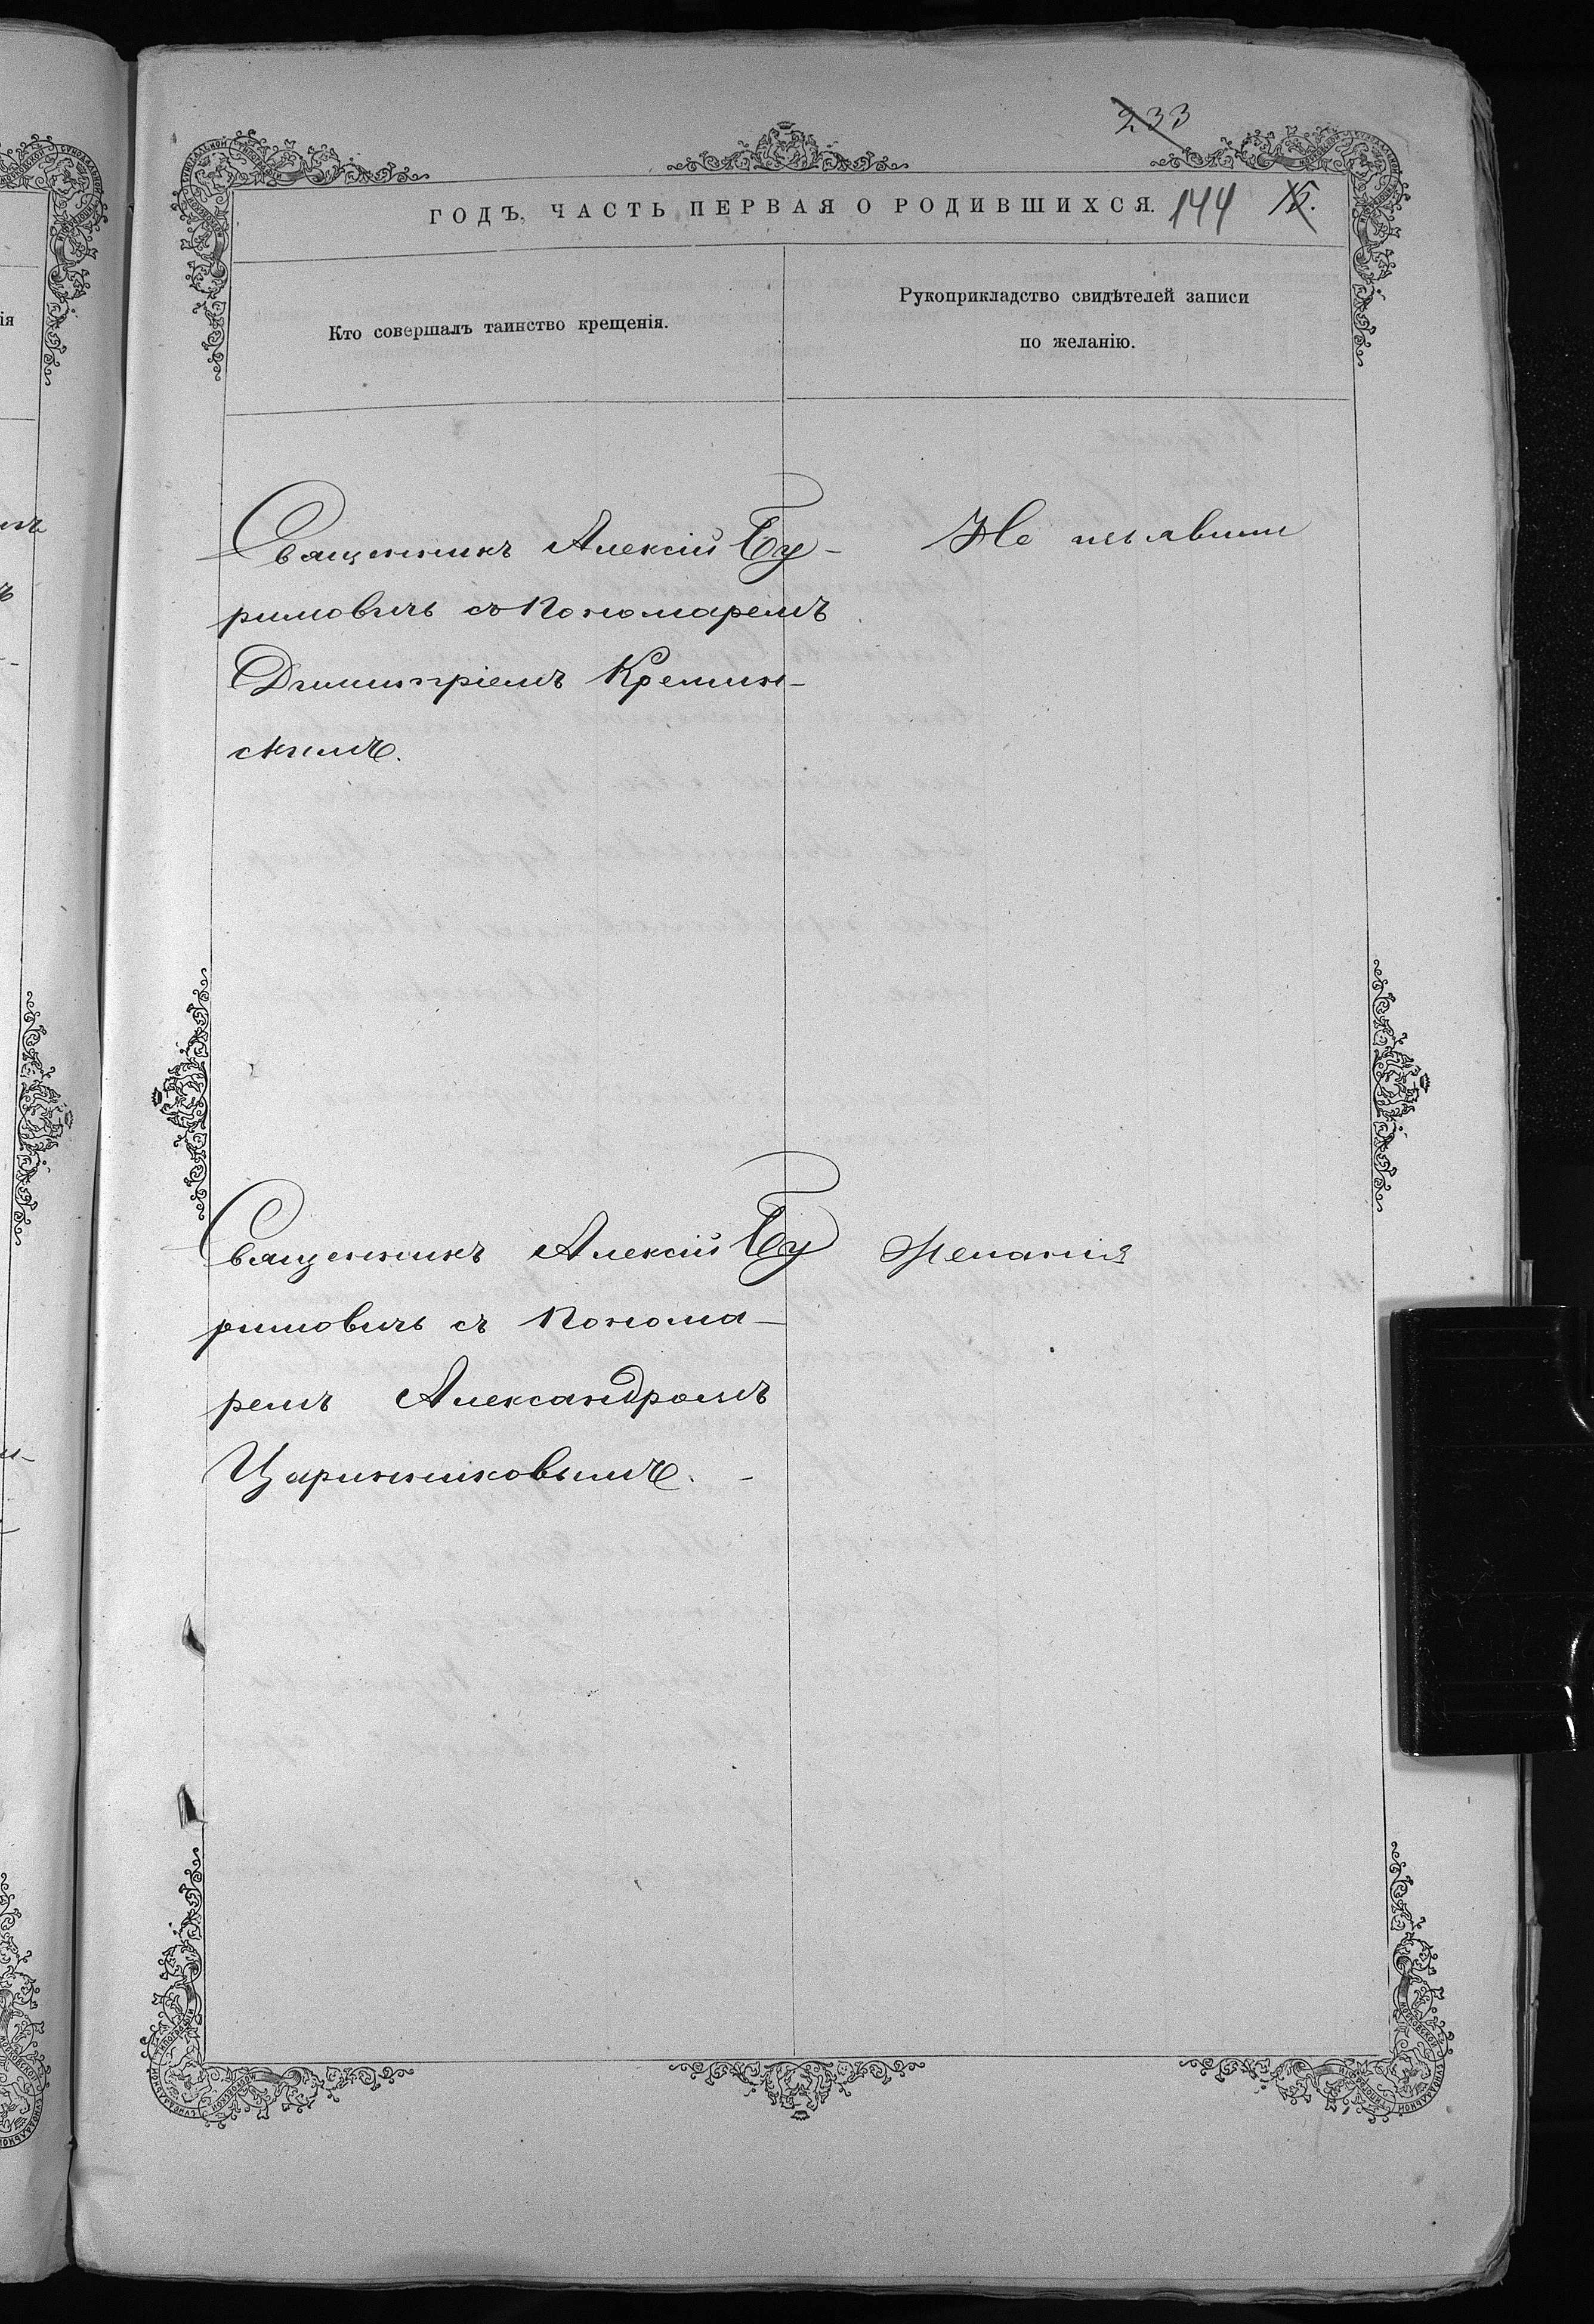 233
ГОДЪ. ЧАСТЬ ПЕРВАЯ О РОДИВШИХСЯ. 144
Кто совершалъ таинство крещенія.
Рукоприкладство свидѣтелей записи
по желанію.
Священникъ Алексій Бу-
римовичъ съ Пономаремъ
Димитріемъ Кремин-
скимъ.
Не изъявили
Священникъ Алексій Бу
римовичъ съ Понома-
ремъ Александромъ
Царинниковымъ. -
Желанія